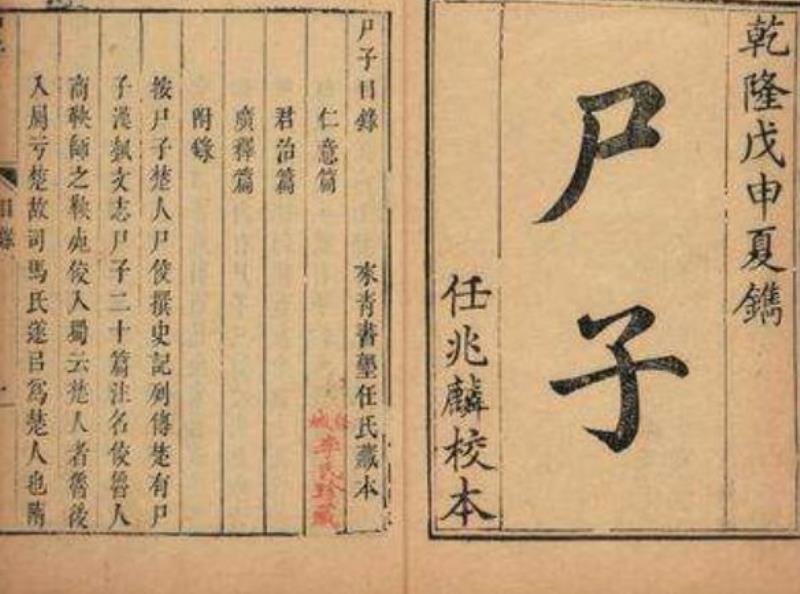 乾隆戊申夏鐫
尸子
任兆麟校本
尸子目錄 來青書塾任氏藏本
仁意篇
李氏珍藏
君治篇
廣釋篇
附錄
按尸子楚人尸佼撰史記列傳楚有尸
子漢蓺文志尸子二十篇注名佼魯人
商鞅師之鞅死佼入蜀云楚人者魯後
入屬亏楚故司馬氏遂㠯爲楚人也隋
目錄